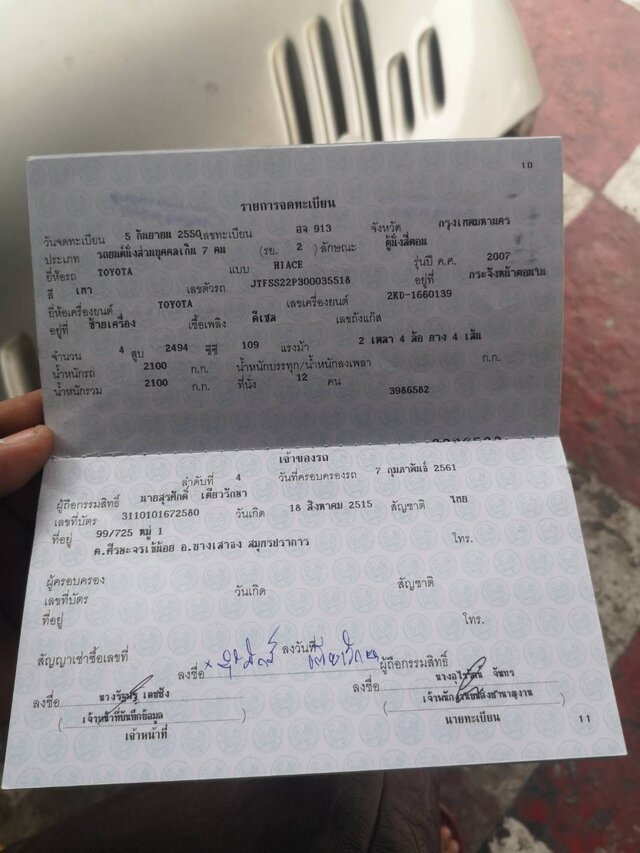 10
รายการจดทะเบียน
วันจดทะเบียน 5 กันยายน 2550 เลขทะเบียน ฮจ 913 จังหวัด กรุงเทพมหานคร
ประเภท รถยนต์นั่งส่วนบุคคลเกิน 7 คน (รย. 2 ) ลักษณะ ตู้นั่งสี่ตอน
ยี่ห้อรถ TOYOTA แบบ HIACE รุ่นปี ค.ศ. 2007
สี เทา เลขตัวรถ JTFSS22P300035518 อยู่ที่ กระจังหน้าตอนใน
ยี่ห้อเครื่องยนต์ TOYOTA เลขเครื่องยนต์ 2KD-1660139
อยู่ที่ ซ้ายเครื่อง เชื้อเพลิง ดีเซล เลขถังแก๊ส
จำนวน 4 สูบ 2494 ซีซี 109 แรงม้า 2 เพลา 4 ล้อ ยาง 4 เส้น
น้ำหนักรถ 2100 ก.ก. น้ำหนักบรรทุก/น้ำหนักลงเพลา ก.ก.
น้ำหนักรวม 2100 ก.ก. ที่นั่ง 12 คน
3986582
เจ้าของรถ
ลำดับที่ 4 วันที่ครอบครองรถ 7 กุมภาพันธ์ 2561
ผู้ถือกรรมสิทธิ์ นายสุรศักดิ์ เดียวรักษา
เลขที่บัตร 3110101672580 วันเกิด 18 สิงหาคม 2515 สัญชาติ ไทย
ที่อยู่ 99/725 หมู่ 1
ต.ศีรษะจรเข้น้อย อ.บางเสาธง สมุทรปราการ โทร.
ผู้ครอบครอง
เลขที่บัตร วันเกิด สัญชาติ
ที่อยู่ โทร.
สัญญาเช่าซื้อเลขที่ ลงวันที่
ลงชื่อ ผู้ถือกรรมสิทธิ์
ลงชื่อ เดชชัง ลงชื่อ จันทร
( เจ้าหน้าที่บันทึกข้อมูล ) ( )
เจ้าหน้าที่ นายทะเบียน
11